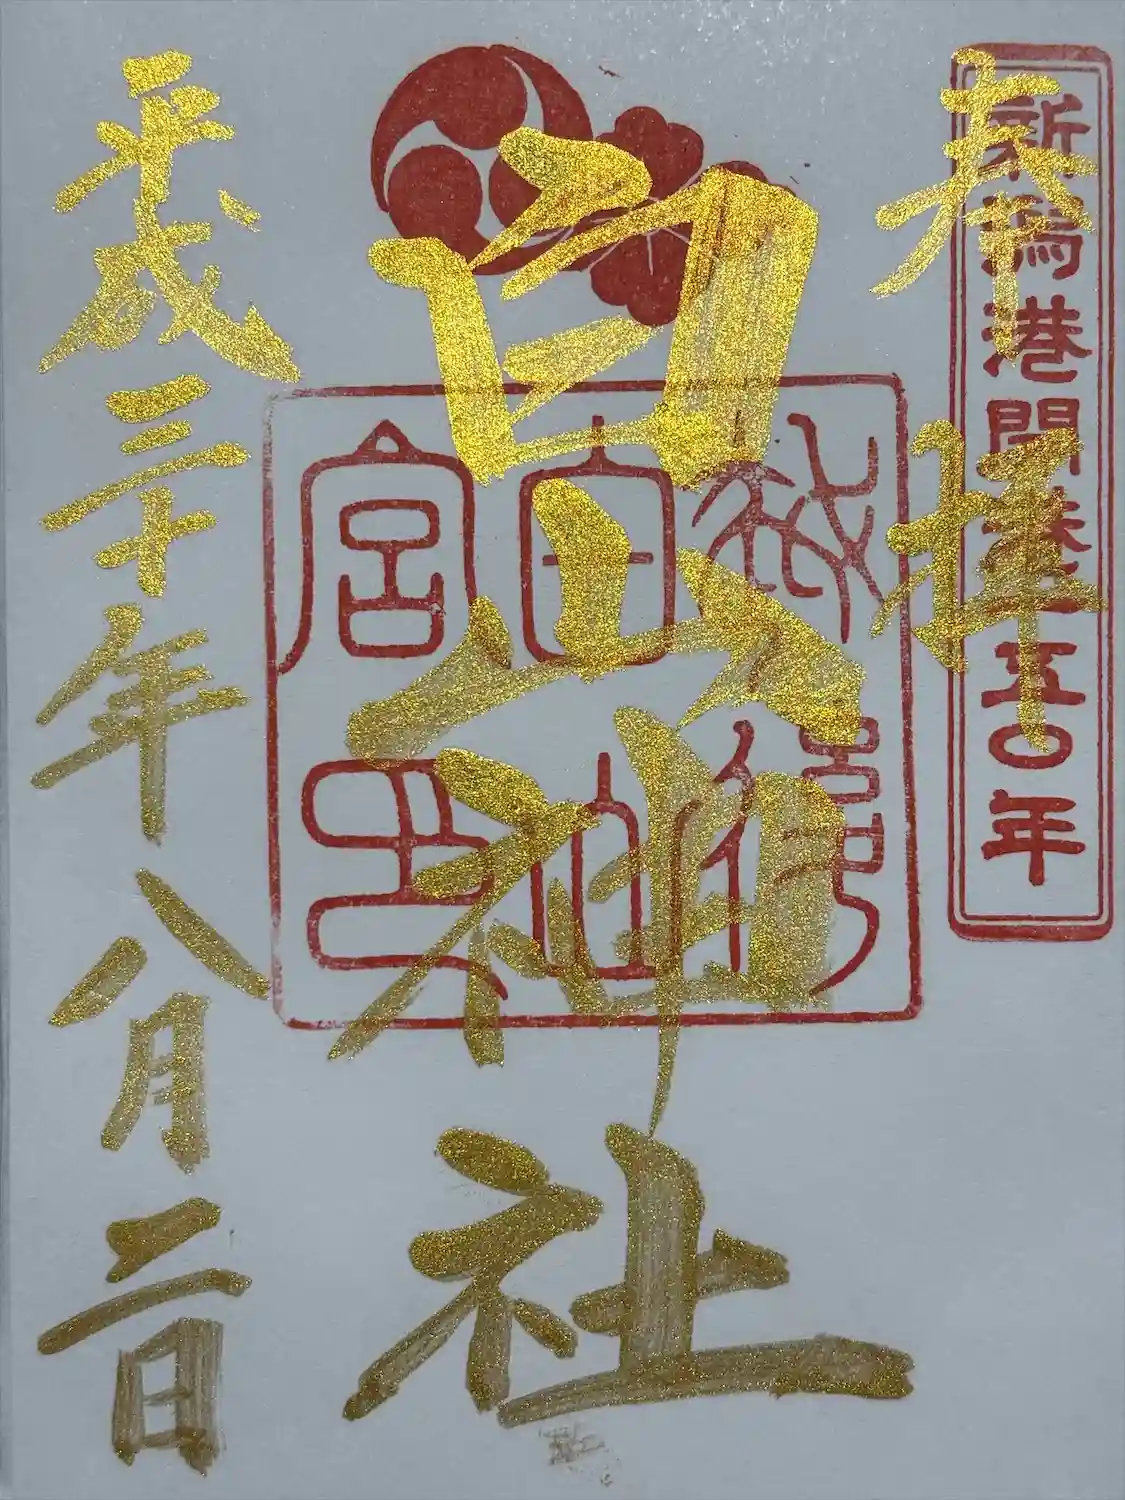 奉拝
新潟港開港一五〇年
白山神社
平成三十年八月二日